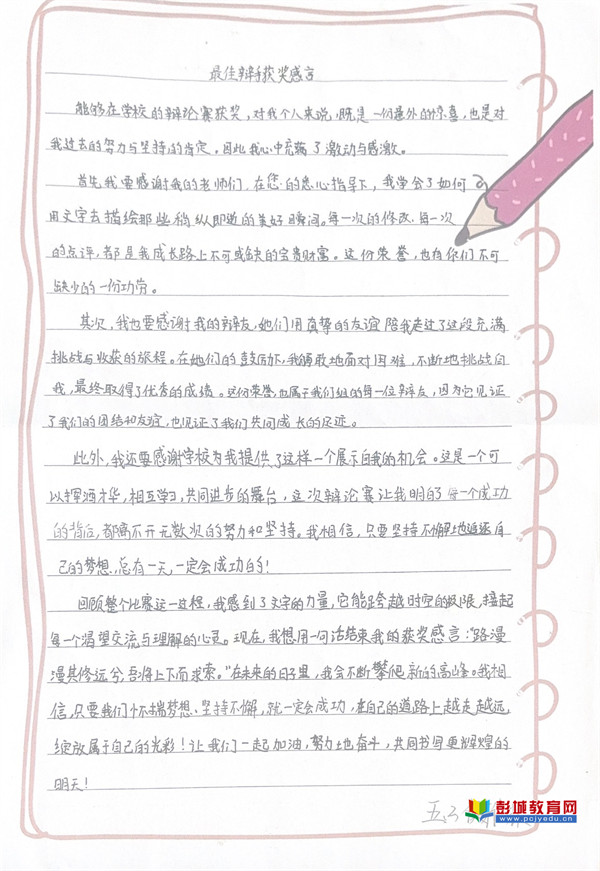 最佳辩手获奖感言
能够在学校的辩论赛获奖，对我个人来说，既是一份意外的惊喜，也是对
我过去的努力与坚持的肯定，因此我心中充满了激动与感激。
首先，我要感谢我的老师们，在您的悉心指导下，我学会了如何
用文字去描绘那些稍纵即逝的美好瞬间。每一次的修改，每一次
的点评，都是我成长路上不可或缺的宝贵财富。这份荣誉，也有你们不可
缺少的一份功劳。
其次，我也要感谢我的辩友，她们用真挚的友谊陪我走过了这段充满
挑战与收获的旅程。在她们的鼓励下，我勇敢地面对困难，不断地挑战自
我，最终取得了优秀的成绩。这份荣誉，也属于我们组的每一位辩友，因为它见证
了我们的团结和友谊，也见证了我们共同成长的足迹。
此外，我还要感谢学校为我提供了这样一个展示自我的机会。这是一个可
以挥洒才华，相互学习，共同进步的舞台，这次辩论赛让我明白了每一个成功
的背后，都离不开无数次的努力和坚持。我相信，只要坚持不懈地追逐自
己的梦想，总有一天，一定会成功的！
回顾整个比赛这一过程，我感到了文字的力量，它能跨越时空的极限，接起
每一个渴望交流与理解的心灵。现在，我想用一句话结束我的获奖感言：“路漫
漫其修远兮，吾将上下而求索。”在未来的日子里，我会不断攀爬新的高峰。我相
信，只要我们怀揣梦想、坚持不懈，就一定会成功，在自己的道路上越走越远，
绽放属于自己的光彩！让我们一起加油，努力地奋斗，共同书写更辉煌的
明天！
五3
彭城教育网
www.pcjyedu.cn